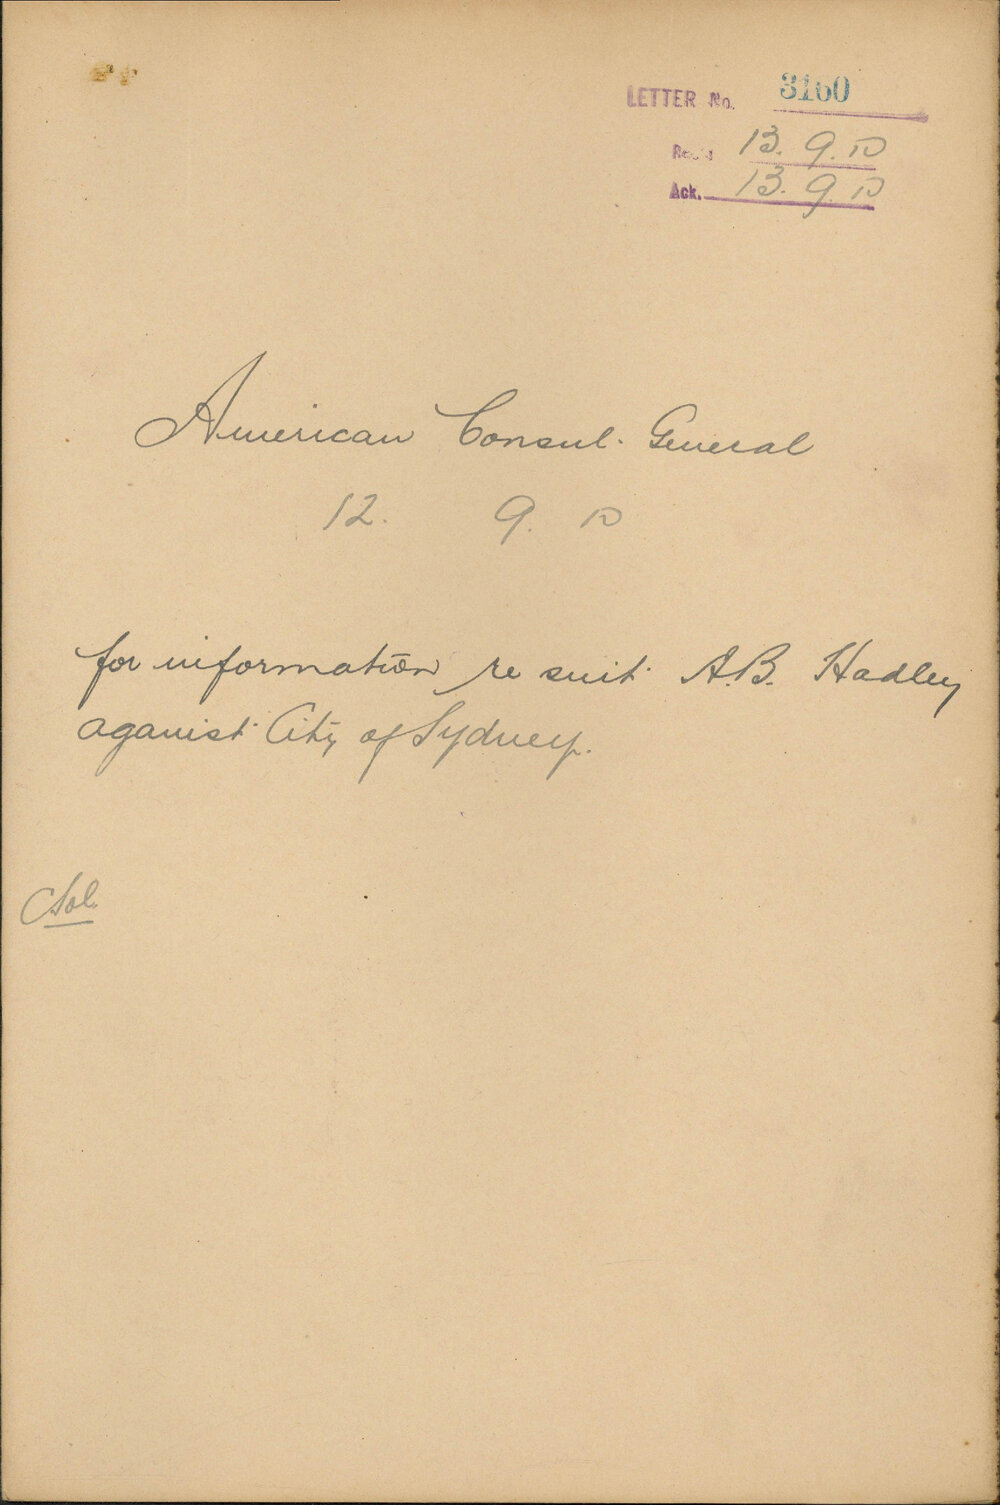 LETTER No. 3160
Rec'd 13. 9. 10
Ack. 13. 9. 10
American Consul-General
12. 9. 10
for information re suit A.B. Hadley
against City of Sydney.
C Sol.